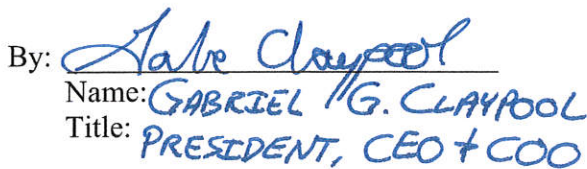 By: Gabe Claypool
Name: GABRIEL G. CLAYPOOL
Title: PRESIDENT, CEO + COO